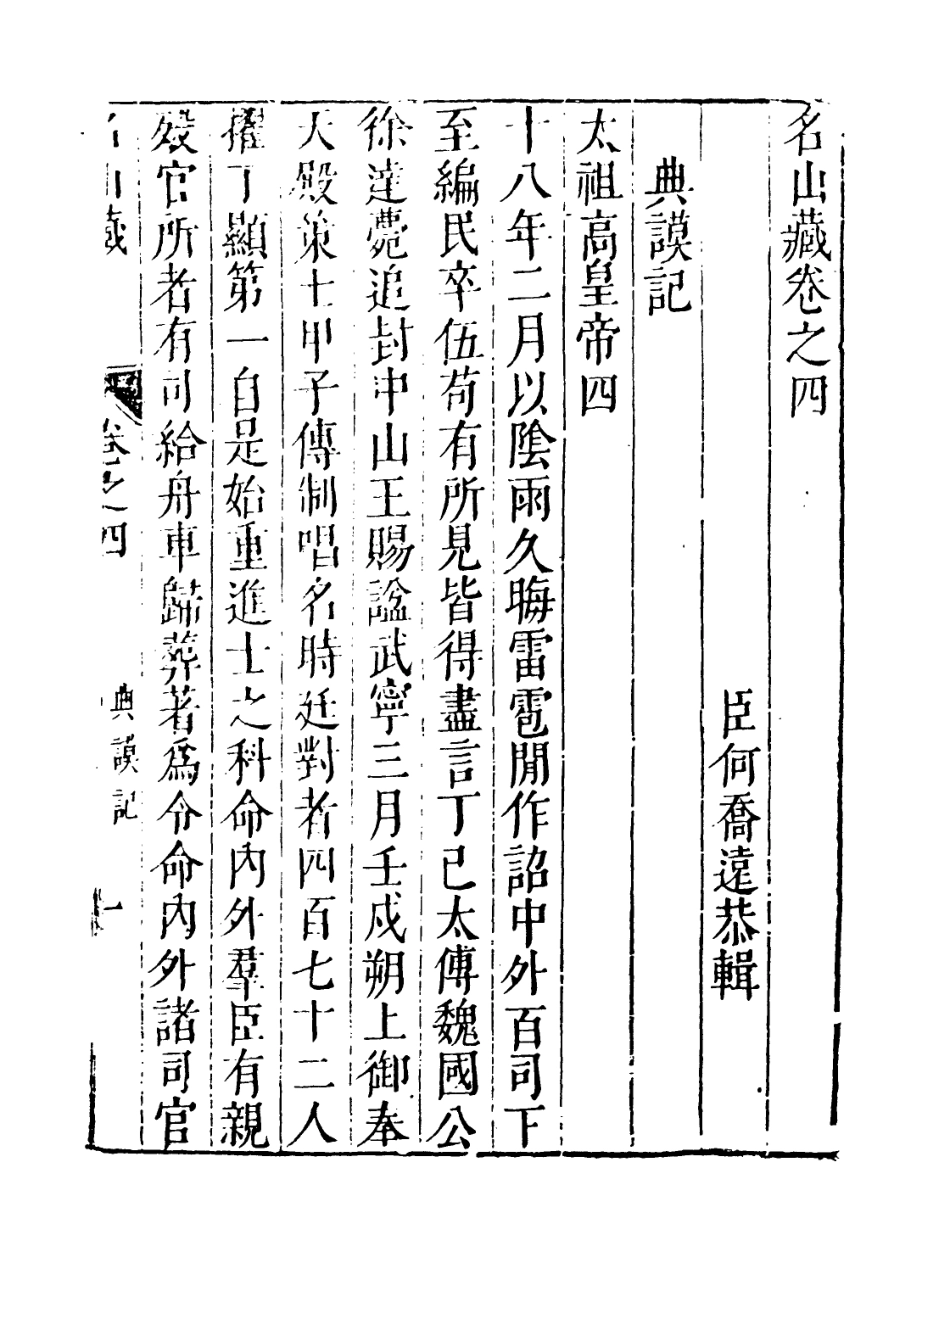 名山藏卷之四
臣何喬遠恭輯
典謨記
太祖高皇帝四
十八年二月以陰雨久晦雷雹閒作詔中外百司下
至編民卒伍苟有所見皆得盡言丁己太傅魏國公
徐達薨追封中山王賜諡武寧三月壬戍朔上御奉
天殿策士甲子傳制唱名時廷對者四百七十二人
擢丁顯第一自是始重進士之科命內外羣臣有親
歿官所者有司給舟車歸葬著爲令命內外諸司官
名山藏
卷之四
典謨記
一